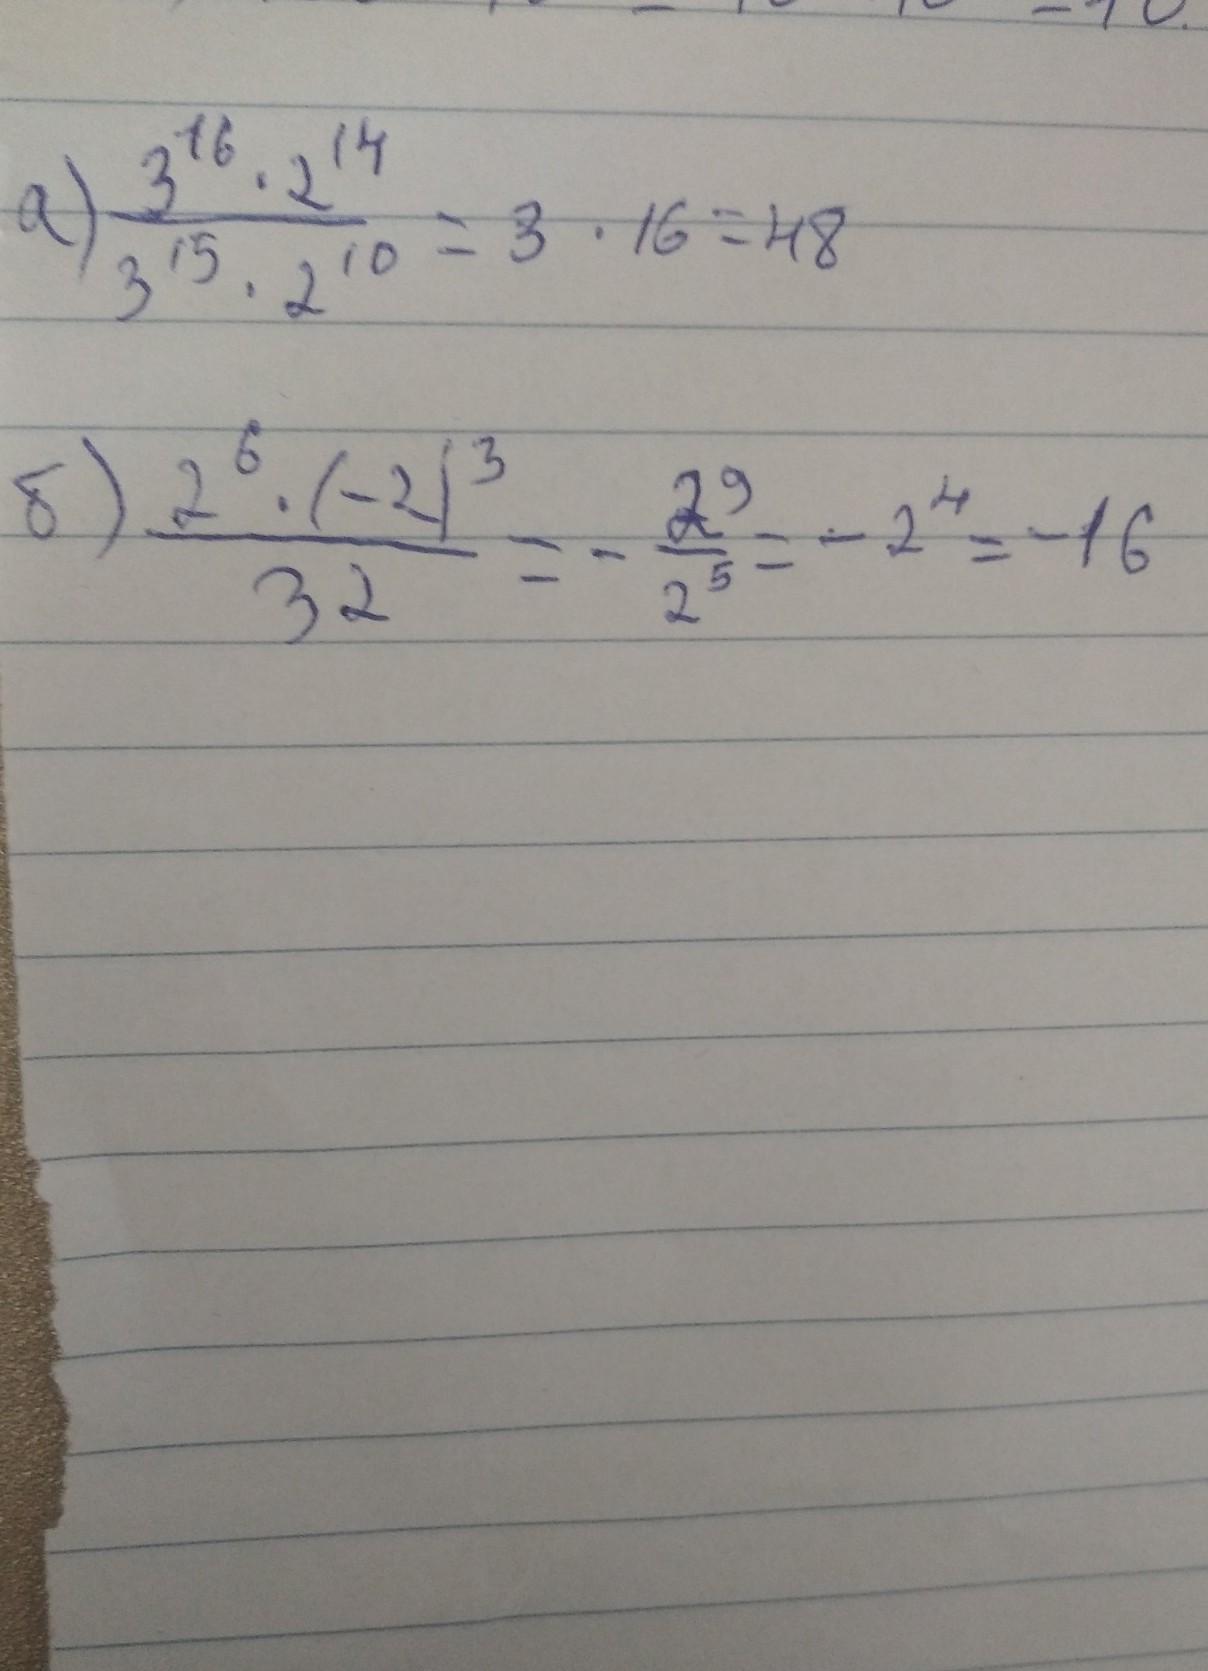 а) 3^16 · 2^14 / 3^15 · 2^10 = 3 · 16 = 48
б) 2^6 · (-2)^3 / 32 = - 2^9 / 2^5 = - 2^4 = -16